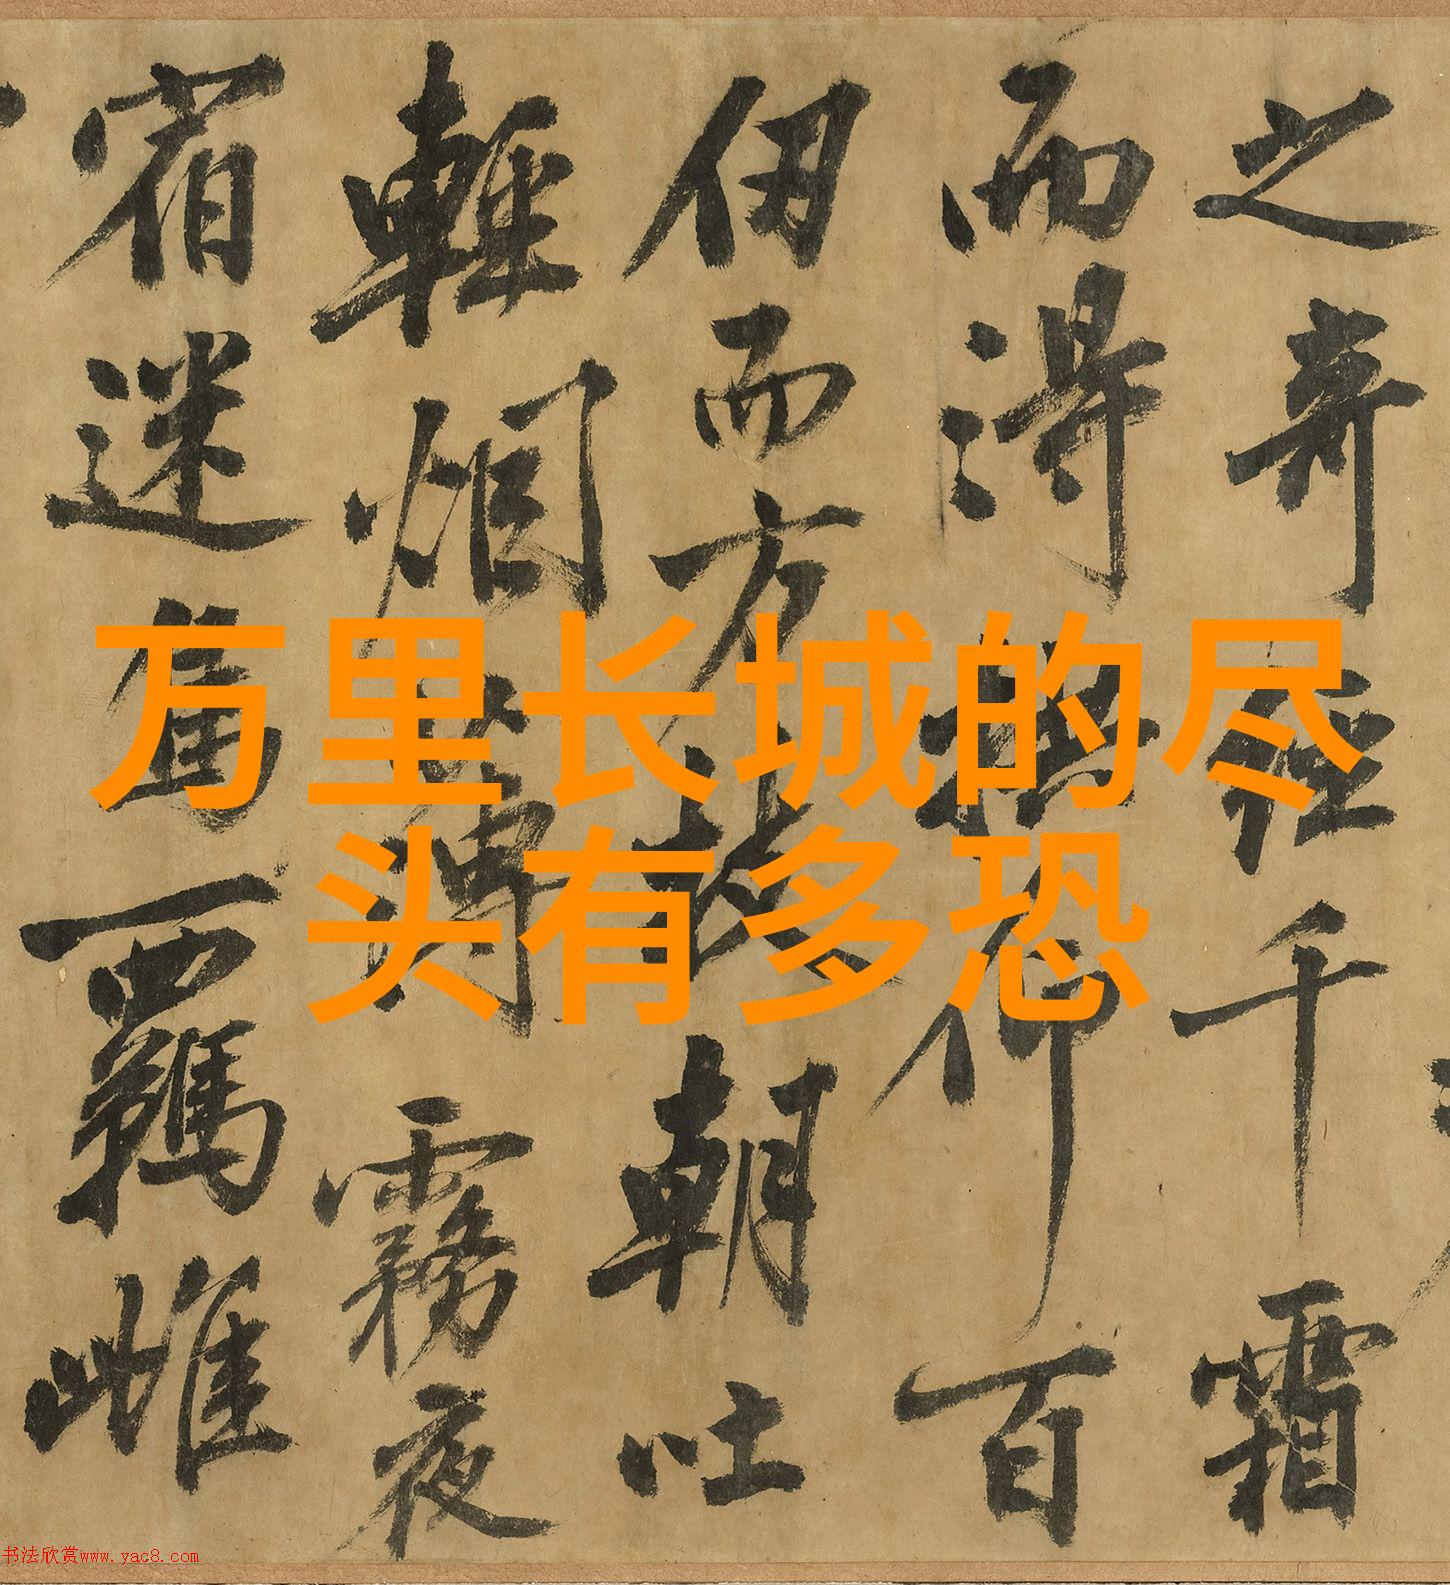 之奇徑千霜
而得仰百
伊而方朝吐
輕烟薄霧夜
宿迷鳥羈雌
万里长城的尽
头有多恐
书法欣赏www.yac8.com